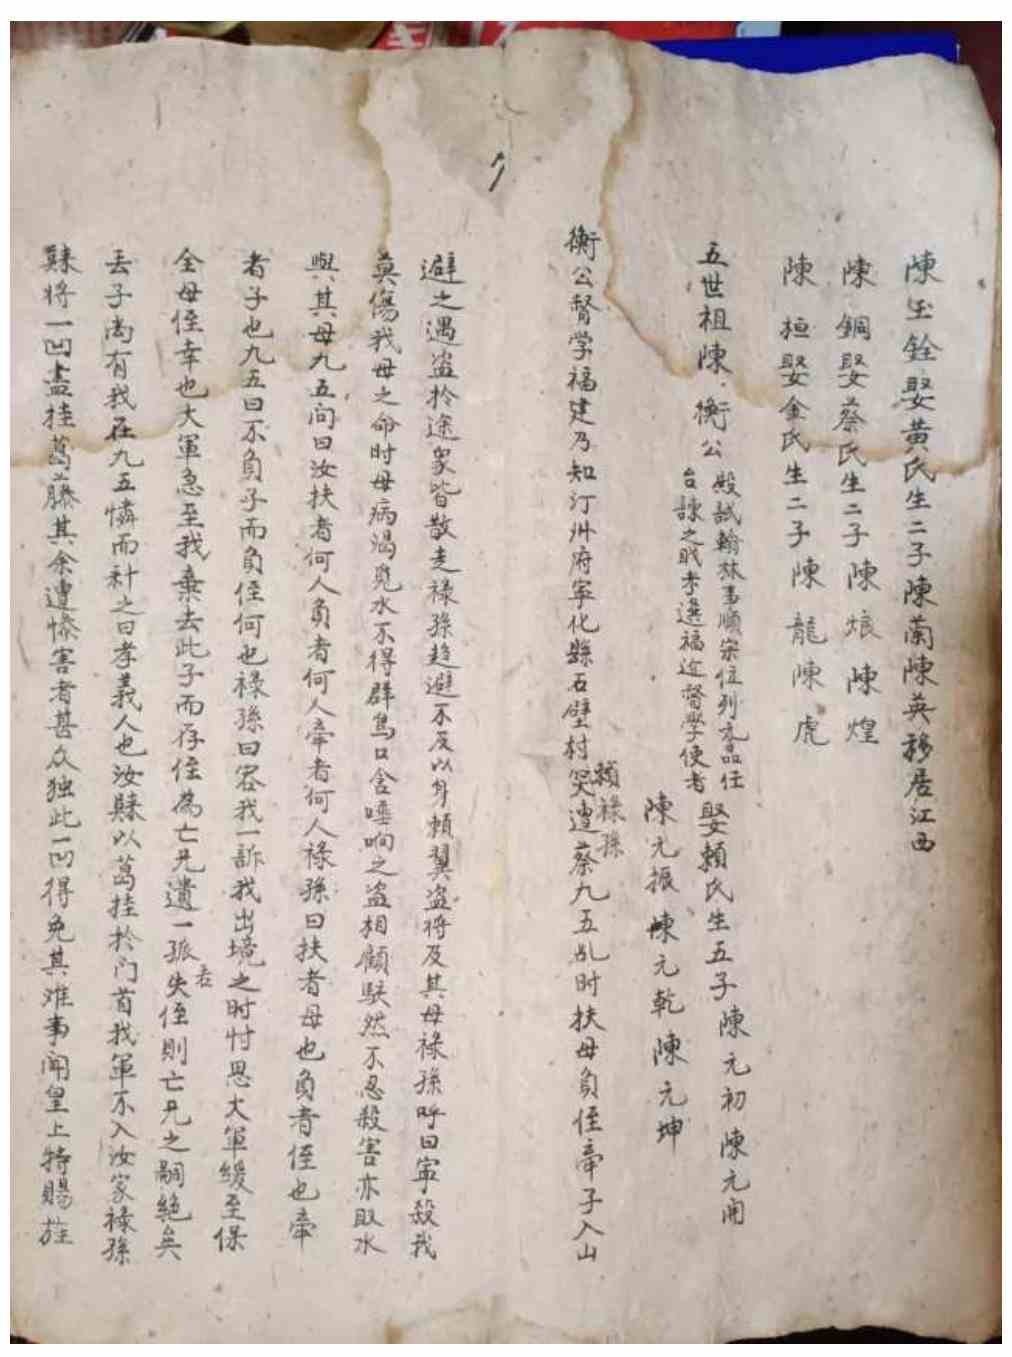 陳玉銓娶黃氏生二子陳蘭陳英移居江西
陳 鋼娶蔡氏生二子陳烺陳煌
陳 桓娶金氏生二子陳龍陳虎
五世祖陳衡公
殿試翰林事順宗位列九品任
台諫之戝考選福近督學使者
娶賴氏生五子陳元初陳元開
陳元振陳元乾陳元坤
衡公督学福建乃知汀州府寧化縣石壁村突遭蔡九五乱时扶母負侄牽子入山
賴祿孫
避之遇盗扵途衆皆散走祿孫趋避不及以身賴翼盗将及其母祿孫呼曰寧殺我
莫傷我母之命时母病渴覓水不得群鳥口含唾响之盗相顧駃然不忍殺害亦取水
與其母九五问曰汝扶者何人負者何人牽者何人祿孫曰扶者母也負者侄也牽
者子也九五曰不負子而負侄何也祿孫曰容我一訴我出境之时忖思大軍緩至保
全母侄幸也大軍急至我棄去此子而存侄為亡兄遺一孤失侄則亡兄之嗣絕矣
若
丢子尚有我在九五憐而计之曰孝義人也汝賴以葛挂扵门首我軍不入汝家祿孫
賴将一凹盡挂葛藤其余遭慘害者甚众独此一凹得免其难事闻皇上特賜旌